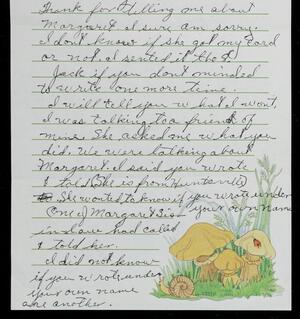 Thank for telling me about
Margaret. I sure am sorry.
I don't know if she got my card
or not. I sented it tho.
Jack if you don't minded
to write one more time.
I will tell you what I wont,
I was talking to a friend of
mine. She asked me what you
did. We were talking about
Margaret. I said you wrote
I told (She is from Huntsville)
She wonted to know if you wrote under
your own name
One of Margaret Sis-
in slaw had called
I told her.
I did not know
if you wrote under
your own name
are another.